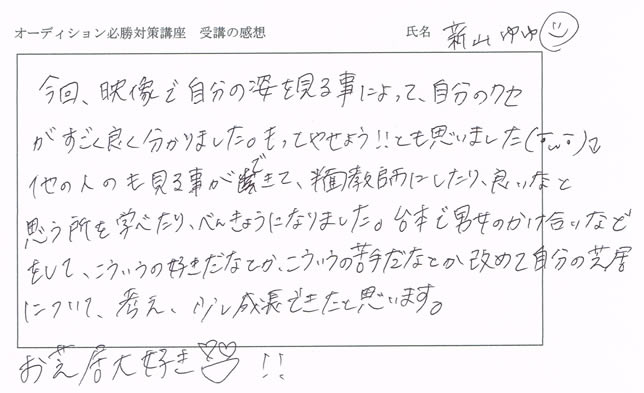 オーディション必勝対策講座 受講の感想
氏名 新山ゆゆ
今回、映像で自分の姿を見る事によって、自分のクセ
がすごく良く分かりました。もってやせよう!!とも思いました(-ω-)↓
他の人のも見る事ができて、反面教師にしたり、良いなと
思う所を学べたり、べんきょうになりました。台本で男女のかけ合いなど
をして、こういうの好きだなとか、こういうの苦手だなとか改めて自分の芝居
について、考え、少し成長できたと思います。
お芝居大好き♡♡!!